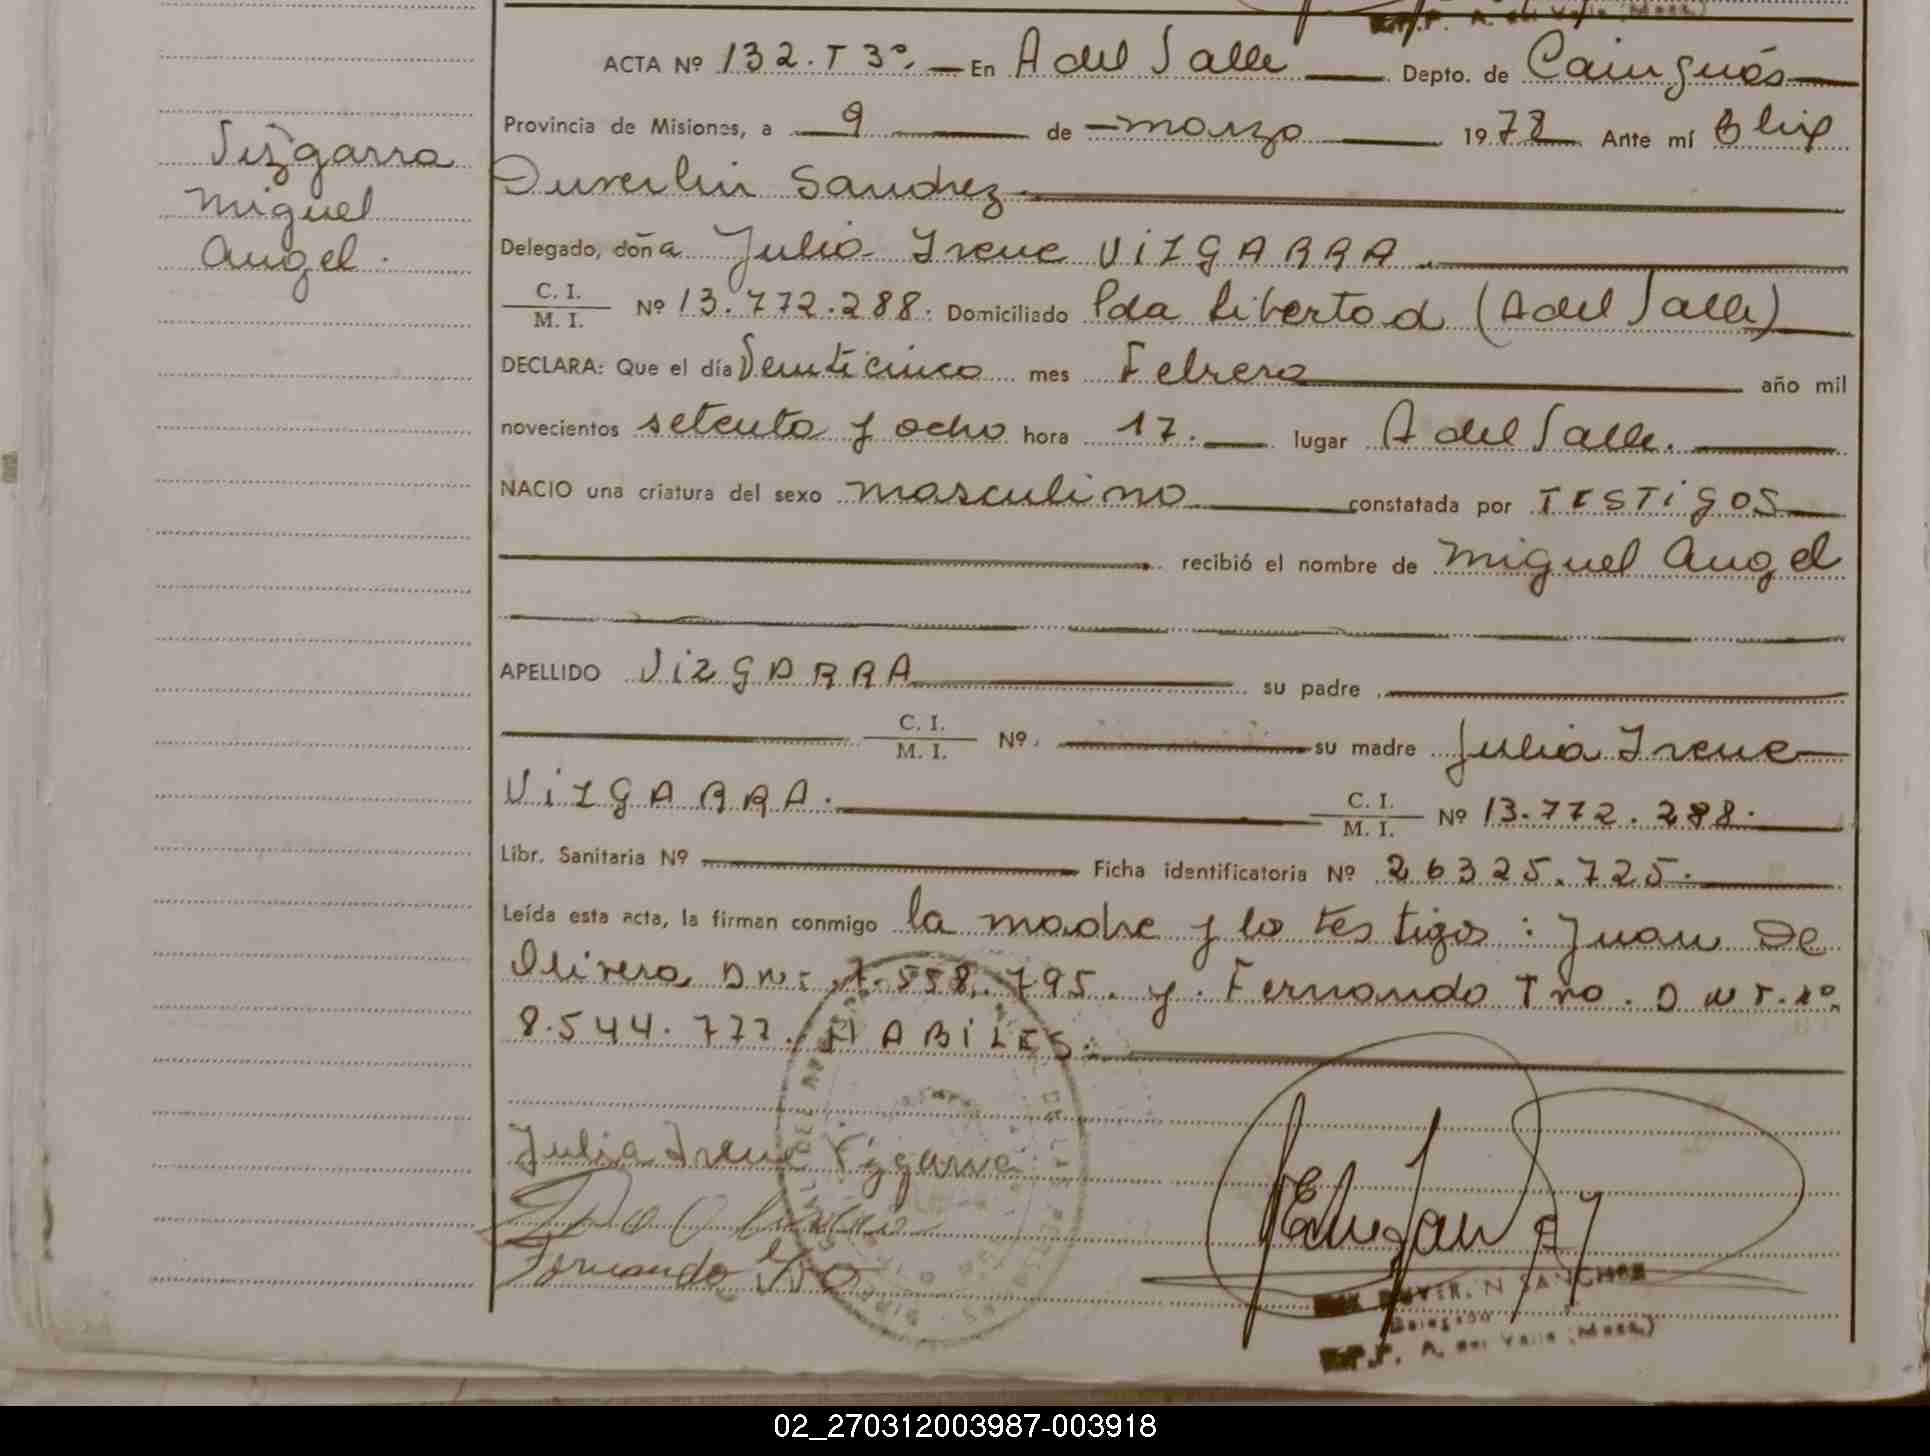 Vizgarra
Miguel
Angel.
ACTA Nº 132. T 3º. En A del Valle Depto. de Cainguás
Provincia de Misiones, a 9 de marzo 1978 Ante mí
Sanchez
Delegado, doña Julia Irene VIZGARRA.
C. I.
M. I. Nº 13.772.288. Domiciliado Pda Libertad (A del Valle)
DECLARA: Que el día Veinticinco mes Febrero año mil
novecientos setenta y ocho hora 17. lugar A del Valle.
NACIO una criatura del sexo masculino constatada por TESTIGOS
recibió el nombre de Miguel Angel
APELLIDO VIZGARRA su padre
C. I.
M. I. Nº su madre Julia Irene
VIZGARRA. C. I.
M. I. Nº 13.772.288.
Libr. Sanitaria Nº Ficha identificatoria Nº 26325.725.
Leída esta acta, la firman conmigo la madre y lo testigos: Juan De
Olivera DNI 1.558.795. y Fernando
8.544.777. HABILES.
Julia Irene Vizgarra
Fernando
SANCHEZ
Delegado
A. del Valle (Mnes.)
02_270312003987-003918